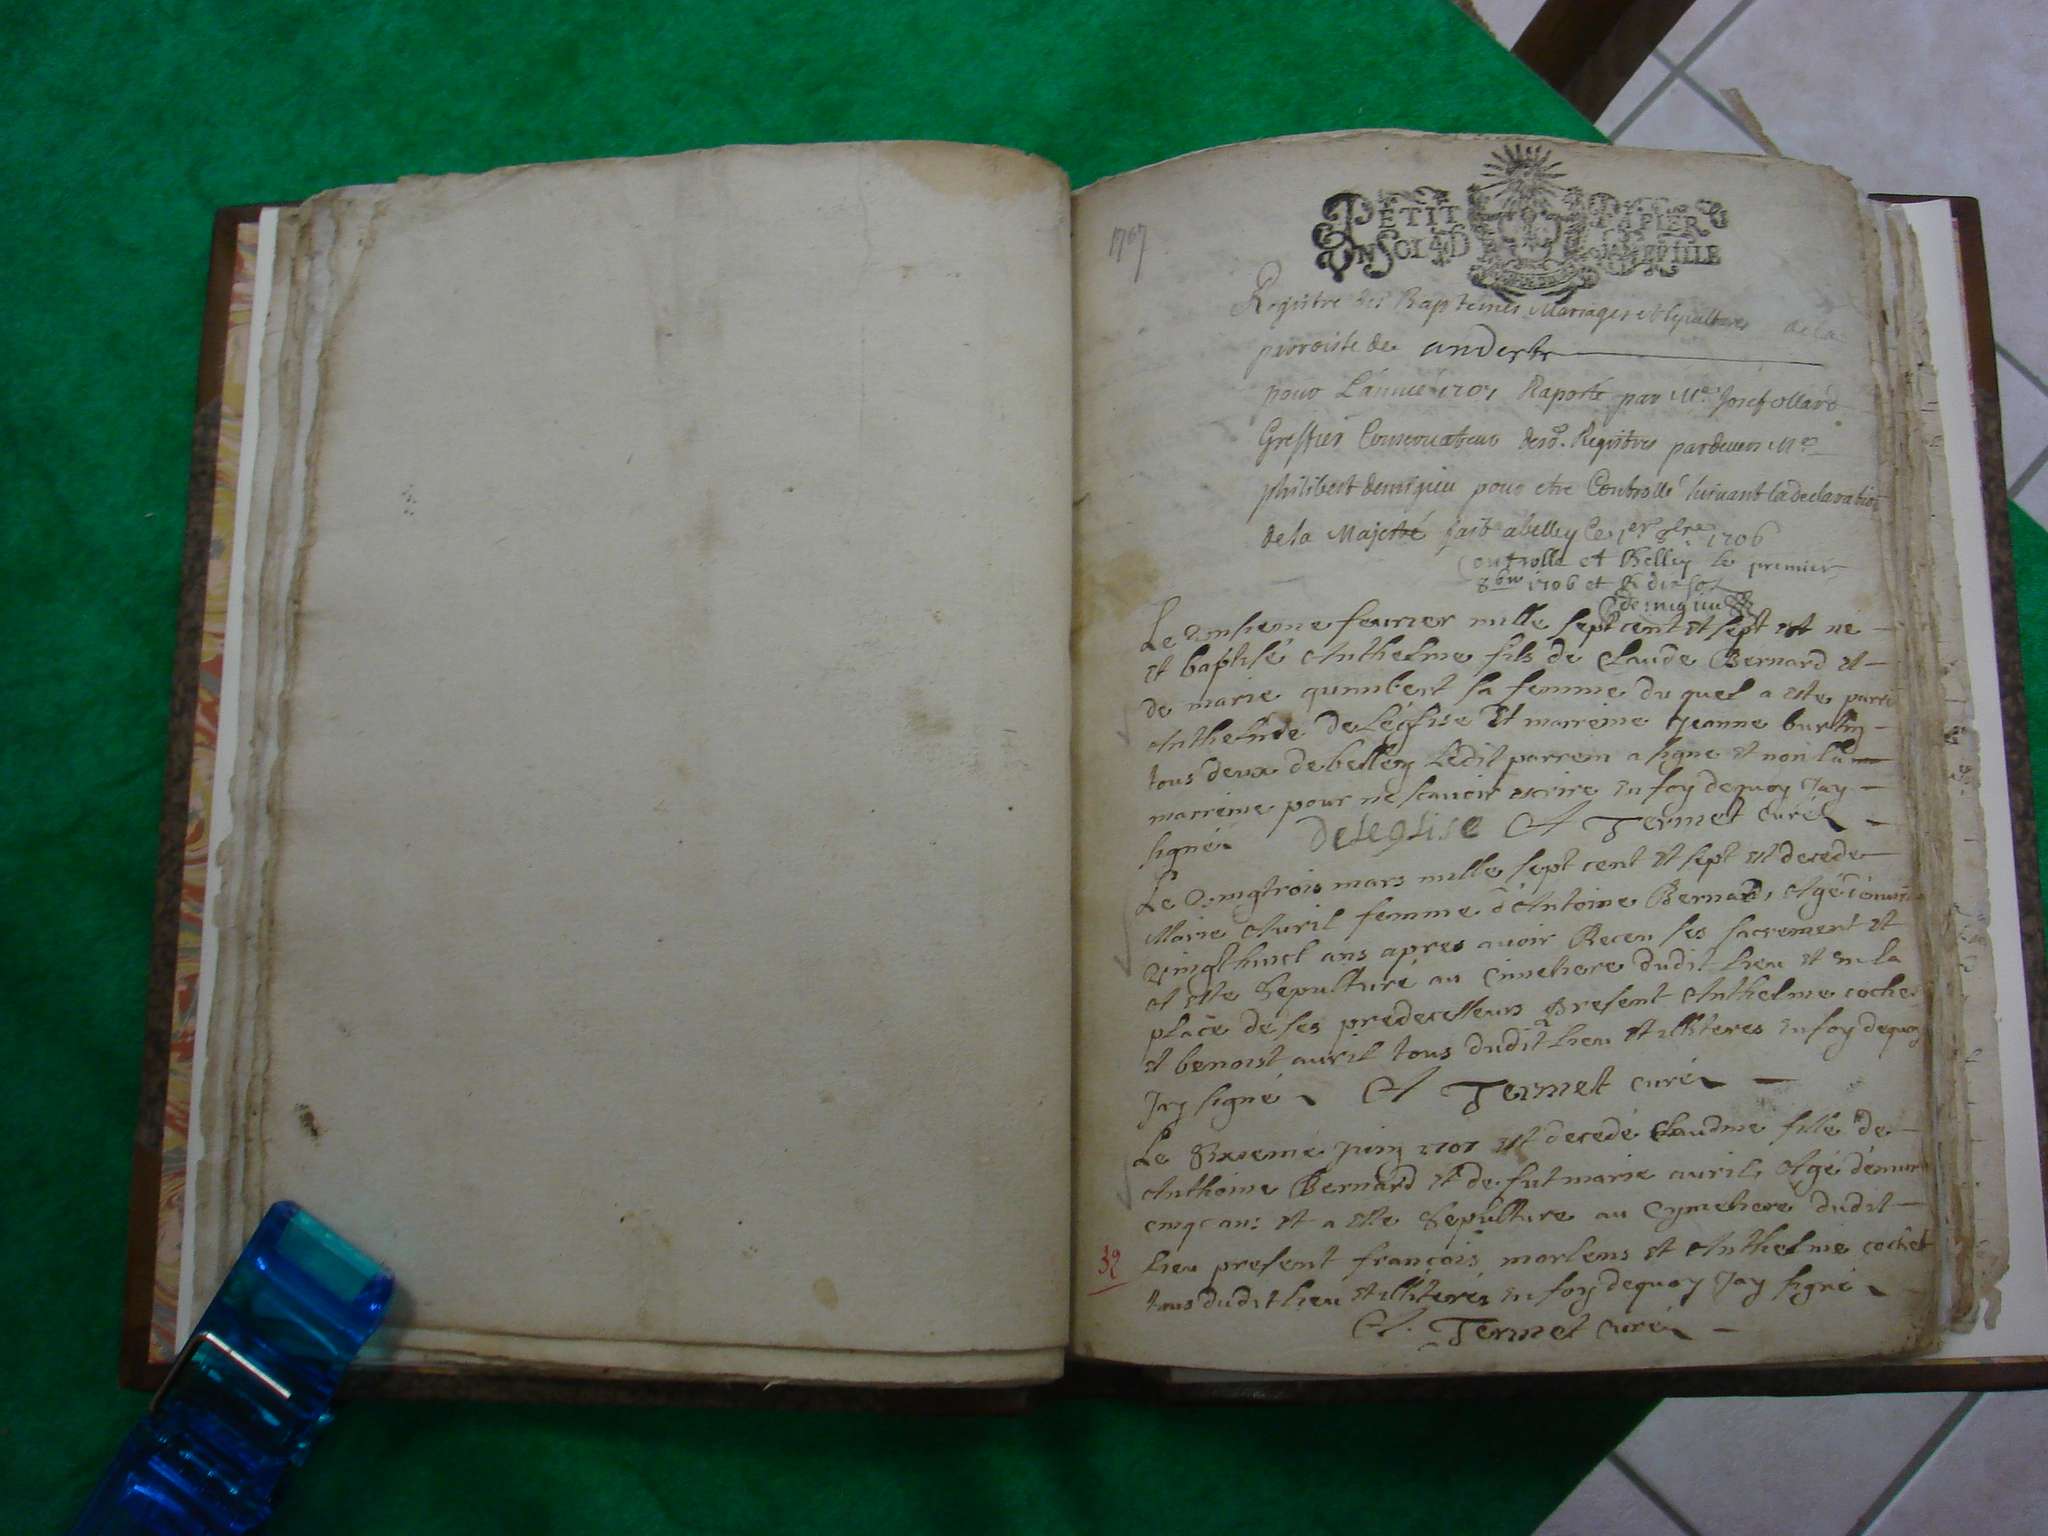 1707
PETIT PAPIER
Registre des Baptemes Mariages et Sepultures de la
parroisse de andert
pour L'année 1707 Raporté par Me Josef ollard
Greffier Conservateur desd. Registres pardevers Me
philibert demigieu pour etre Controllé suivant la declaration
de sa Majesté fait a belley ce 1er 8bre 1706
Controllé et Belley le premier
8bre 1706 et
demigieu
Le onsieme feurier mille sept cent et sept est né
et baptisé Anthelme fils de Claude Bernard et
de marie qumbert sa femme du quel a este parre
Anthelme de Léglise et marreine Jeanne burtin
tous deux de belley Ledit parrein a signé et non la
marreine pour ne scauoir escrire en foy dequoy Jay
signé deleglise A Termet curé
Le vingtrois mars mille sept cent et sept est decede
Marie Auril femme d'Antoine Bernard, Agé d'enuiron
vingt huict ans apres auoir Receu ses sacrement et
a este Sepulturé au Cimetiere dudit lieu et en la
place de ses predecesseurs Present Anthelme cochet
et benoist auril tous dudit lieu et illiteres en foy dequoy
Jay signé A Termet curé
Le Sixieme juin 1707 est decedé Claudine fille de
Anthoine Bernard et de fut marie auril, Agé d'enuiron
cinq ans et a este Sepulturé au Cymetiere dudit
lieu present françois morlens et Anthelme cochet
tous dudit lieu et illiterés en foy dequoy Jay signé
A. Termet curé
32